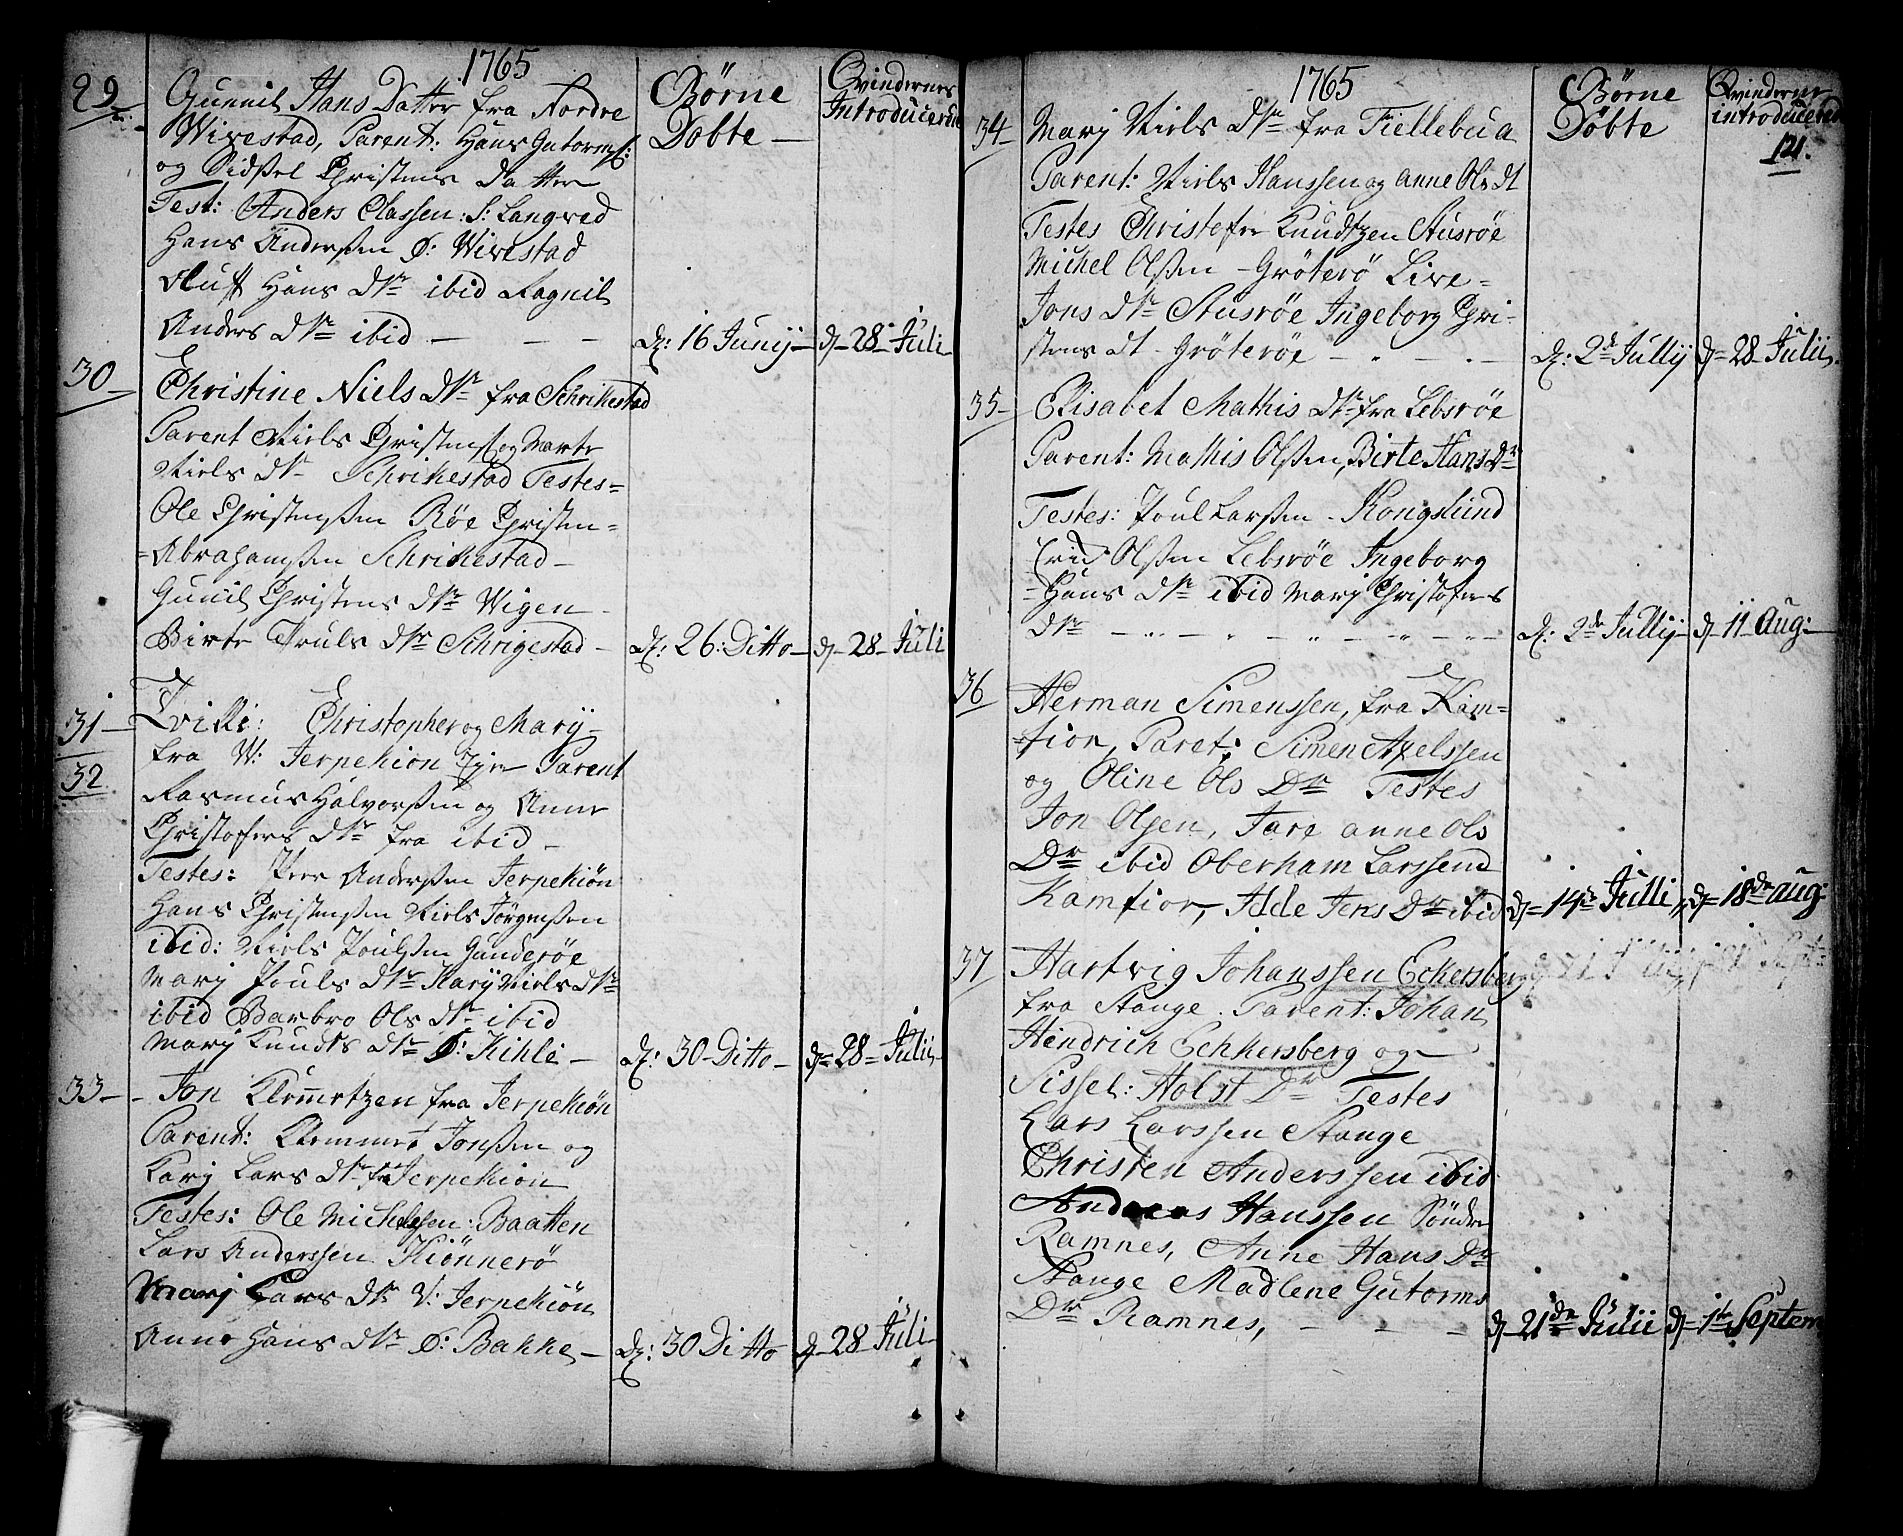 1765
Børne
Døbte —
Qvindernes
Introducerede
29
Gunnil Hans Datter fra Nordre
Wivestad, Parent: Hans Gutormss:
og Sidsel Christens Datter
Test: Anders Classen: S: Langved
Hans Anderssen Ø: Wivestad
Hans Dtr ibid Ragnil
Anders Dtr ibid — — —
d: 16 Junij — d 28 Juli
30
Christine Niels Dtr fra Schrikestad
Parent Niels Christens: og Marte
Niels Dtr Schrikestad Testes=
Ole Christenssen Røe Christen=
=Abrahamssen Schrikestad —
Gunil Christens Dtr Wigen —
Birte Truls Dtr Schrigestad —
d: 26: Ditto — d 28 Juli
31
32
Tvilli: Christopher og Marij —
fra W: Jerpekiøn Parent
Rasmus Halvorssen og Anne
Christofers Dtr fra ibid —
Testes: Peer Anderssen Jerpekiøn
Hans Christenssen Niels Jørgenssen
ibid: Niels Poulssen Gunderøe
Marj Pouls Dtr Karij Niels Dtr
ibid Barbro Ols Dtr ibid
Marj Knudts Dtr Ø: Kihle —
d: 30 Ditto — d 28 Julii
33 —
Jon Klemmetzen fra Jerpekiøn
Parent: Klemmet Jonssen og
Karj Lars Dtr fra Jerpekiøn
Testes: Ole Michelssen: Baatten
Lars Anderssen Kiønnerø
Marj Lars Dtr V: Jerpekiøn
Anne Hans Dtr Ø: Bakke, —
d: 30 Ditto d 28 Juli
1765
Børne
Døbte
Qvinderne
introducered
121.
34
Marj Niels Dtr fra Fiellebua
Parent: Niels Hanssen og Anne Ols dt
Testes Christofer Knudtzen Ausrøe
Michel Olssen — Grøterø Live=
Jons Dtr Ausrøe Ingeborg Chri-
stens Dt — Grøterøe — — —
d: 2de Jullij d 28 Julii
35
Elisabet Mathis Dtr fra Lebsrøe
Parent: Mathis Olssen, Birte Hans Dr
Testes: Poul Larssen — Kongslund
Olssen Lebsrøe Ingeborg
=Hans Dtr ibid Marj Christofers
Dtr — — — — — —
d: 2de Jullij d 11 Aug: —
36
Herman Simenssen, fra Kam=
=fior, Paret: Simen Axelssen
og Oline Ols Dtr Testes
Jon Olsen, Fare Anne Ols
Dtr ibid Oberham Larssen
Kamfior, Idde Jens Dtr ibid
d 14de Julli, d 18de aug:
37
Hartvig Johanssen Eckersberg
fra Stange. Parent: Johan
Hendrich Echkersberg og —
Sissel: Holst Dr Testes
Lars Larssen Stange
Christen Anderssen ibid
Andreas Hanssen Søndre
Ramnes, Anne Hans Dtr
Stange Madlene Gutorms
Dtr Ramnes, — — —
d 21de Julii d 1te Septem